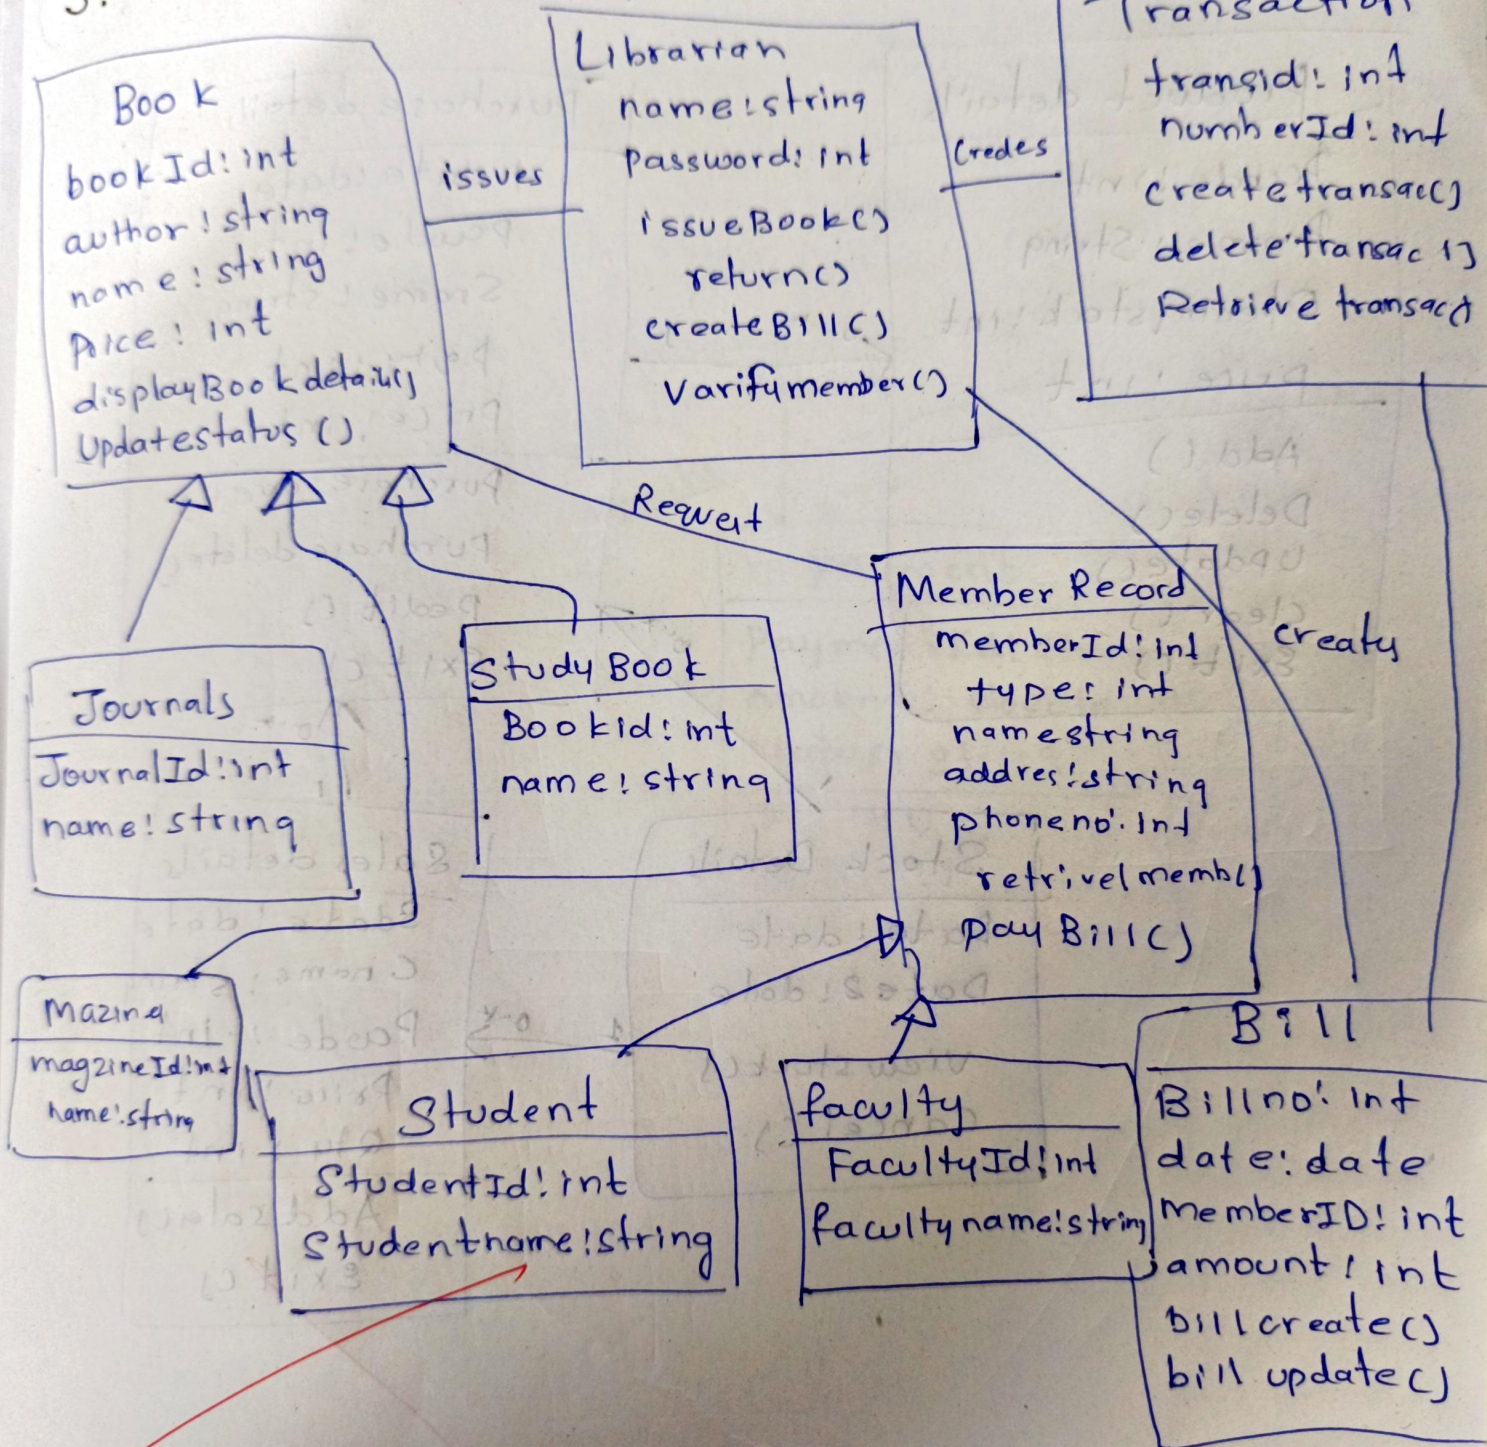 Book
bookId: int
author: string
name: string
Price: int
displayBookdetails()
Updatestatus ()
issues
Librarian
name: string
Password: int
issueBook()
return()
createBill()
Varifymember()
Credes
Transaction
transid: int
numberId: int
createtransac()
deletetransac()
Retrieve transac()
Request
Journals
JournalId: int
name: string
Study Book
Bookid: int
name: string
Member Record
memberId: int
type: int
namestring
addres: string
phoneno: int
retrivelmemb()
payBill()
creaty
Mazine
magzineId: int
name: string
Student
StudentId: int
Studentname: string
faculty
FacultyId: int
facultyname: string
Bill
Billno: int
date: date
memberID: int
amount: int
billcreate()
bill update()